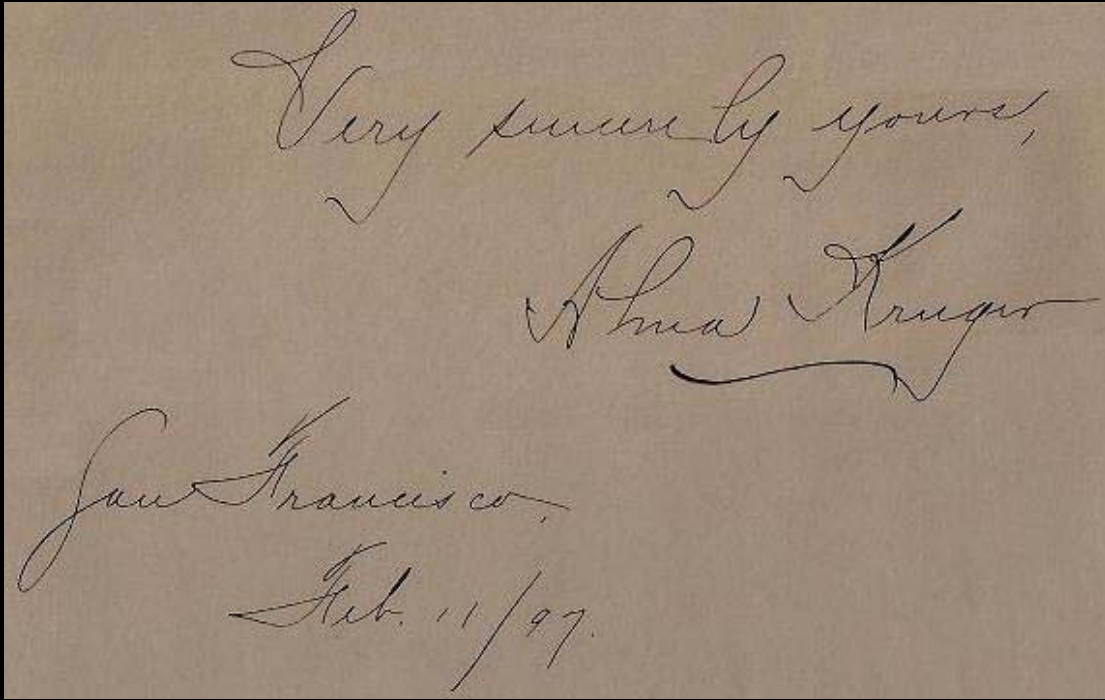 Very sincerely yours,
Alma Kruger
San Francisco,
Feb. 11/97.